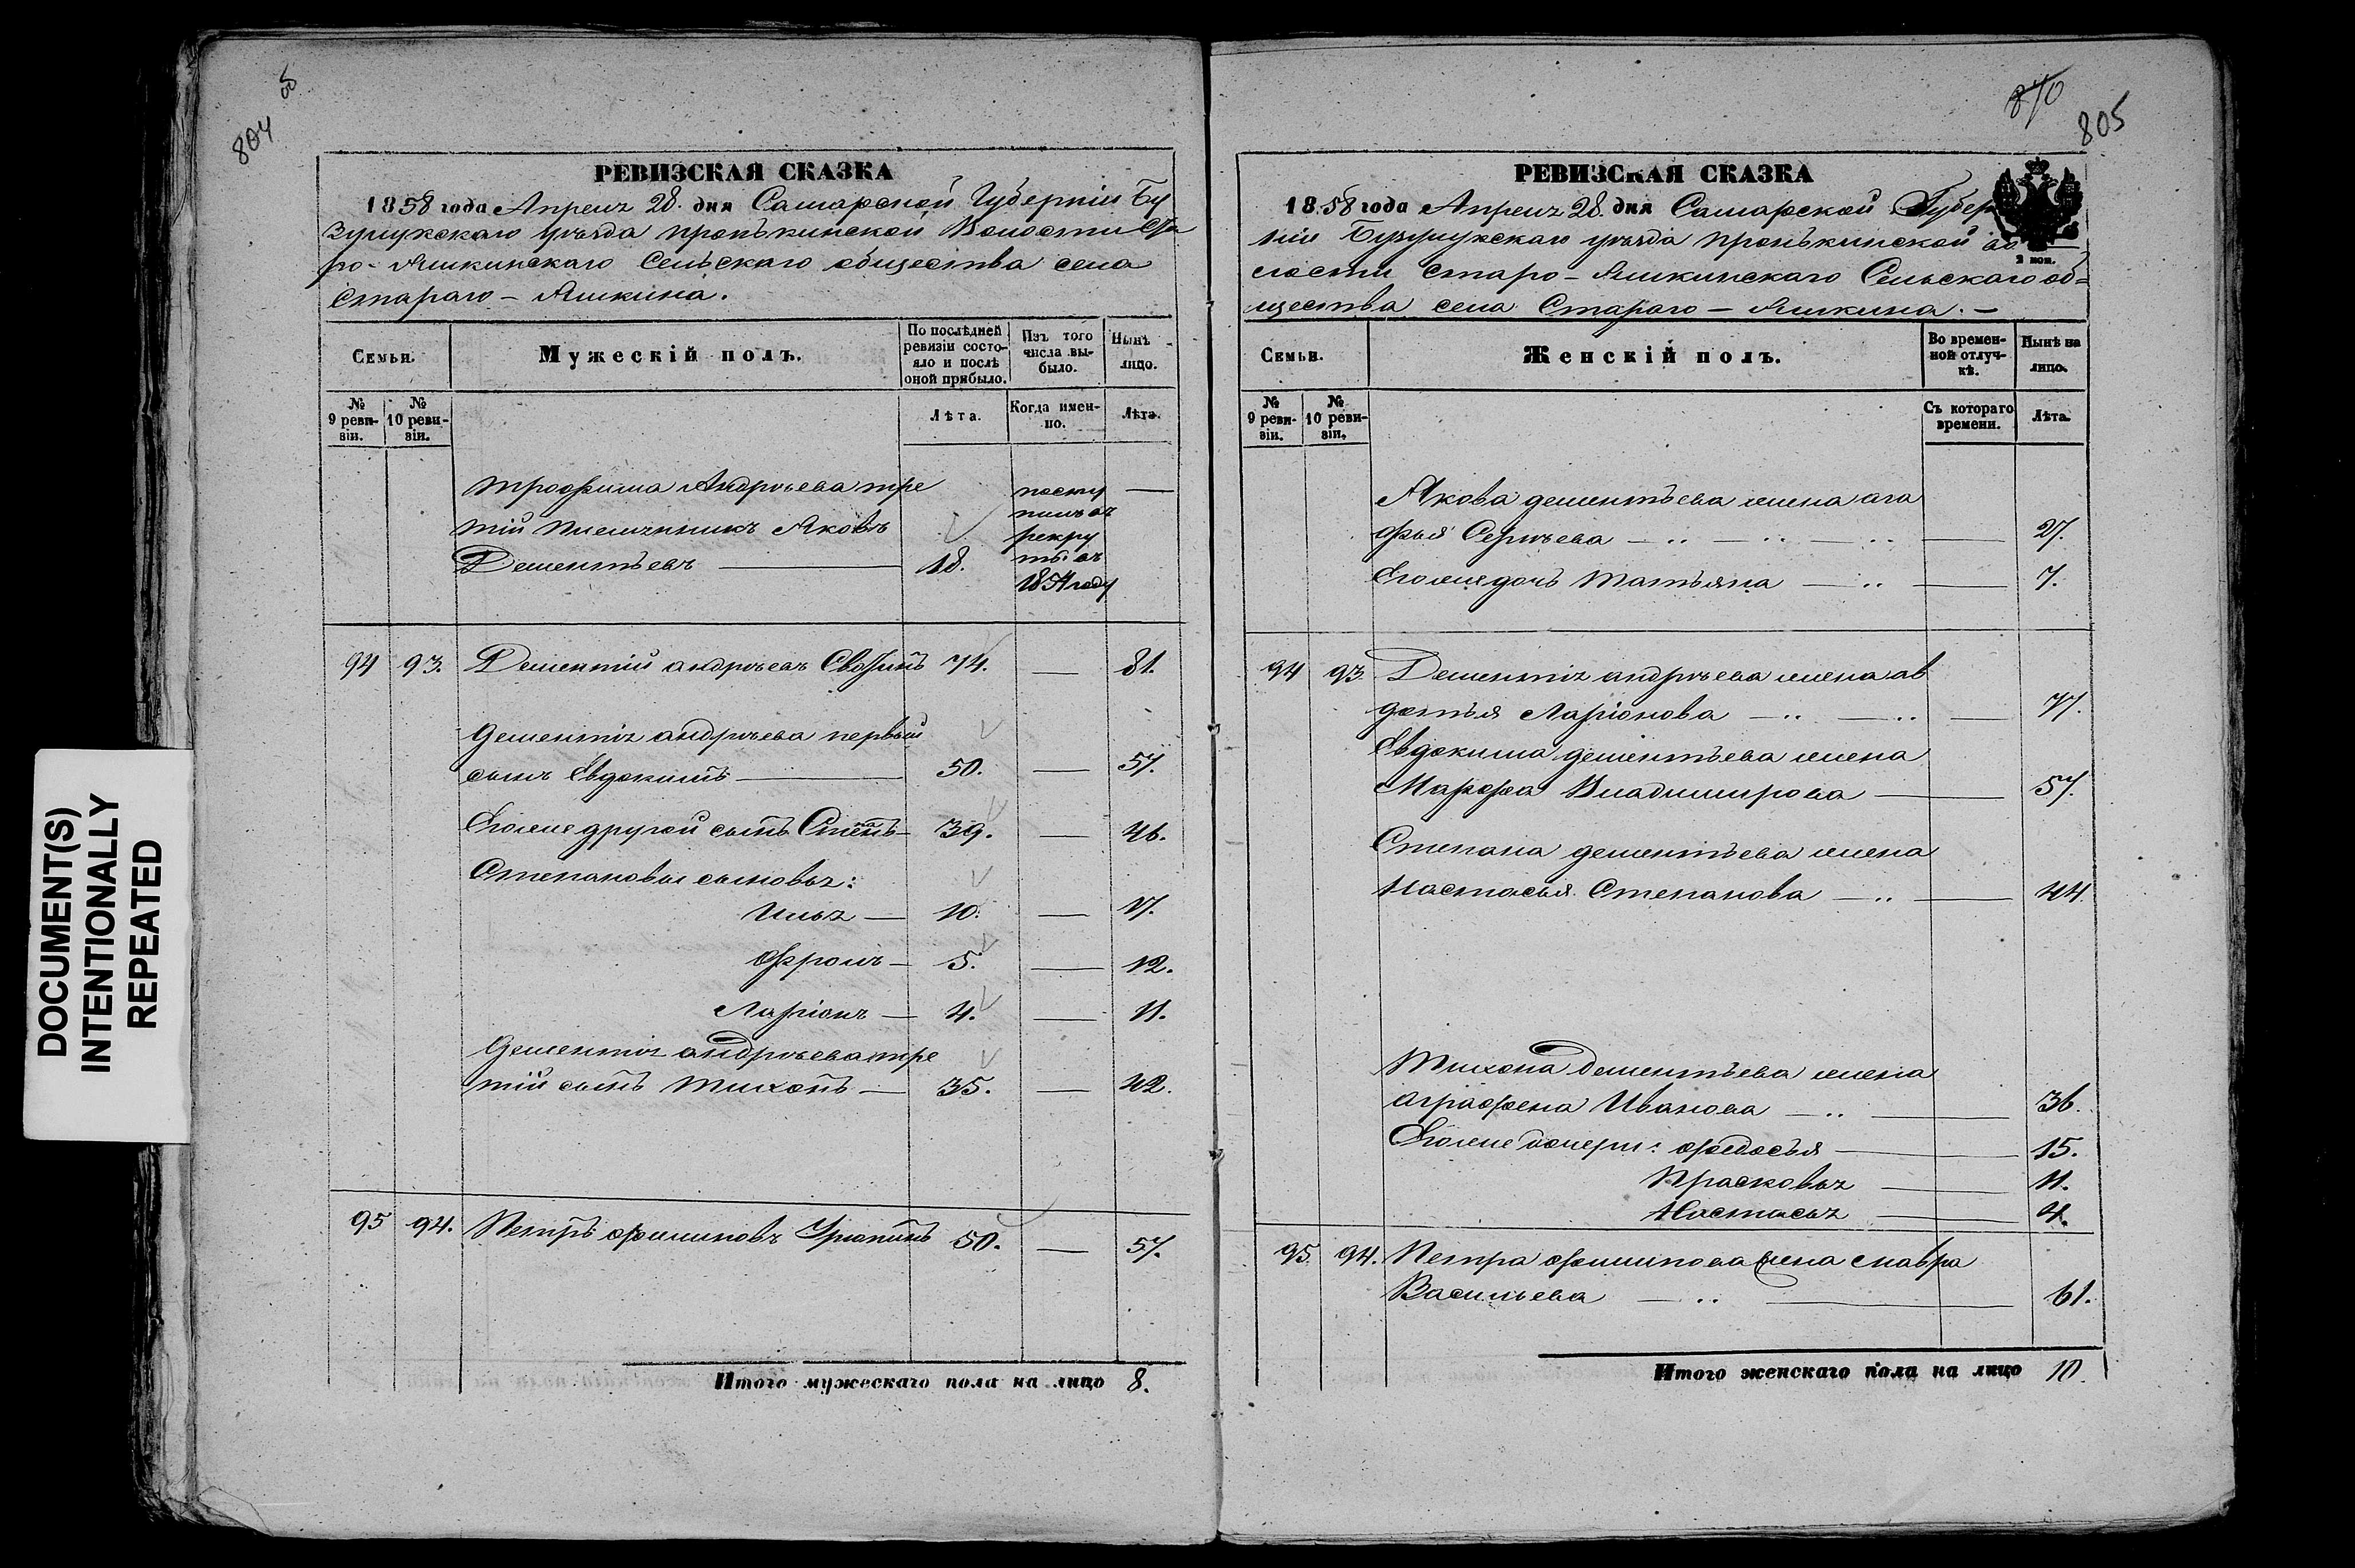 DOCUMENT(S)
INTENTIONALLY
REPEATED
804
РЕВИЗСКАЯ СКАЗКА
1858 года Апреля 28. дня Самарской Губерніи Бу
зулукскаго уѣзда Пронькинской Волости Ста
ро-Яшкинскаго Сельскаго общества села
Стараго-Яшкина.
Семьи.
Мужескій полъ.
По послѣдней ревизіи состояло и послѣ оной прибыло.
Изъ того числа выбыло.
Нынѣ лицо.
№ 9 ревизіи.
№ 10 ревизіи.
Лѣта.
Когда именно.
Лѣта.
Трофима Андреева тре
тій племянникъ Яковъ
Дементьевъ — 18.
посту
пилъ въ
рекру
ты въ
1854 году
94 93. Дементій Андреевъ Своѣкинъ 74. — 81.
Дементія Андреева первый
сынъ Евдокимъ — 50. — 57.
Егоже другой сынъ Степанъ — 39. — 46.
Степановы сыновья:
Илья — 10. — 17.
Фролъ — 5. — 12.
Ларіонъ — 4. — 11.
Дементія Андреева тре
тій сынъ Тихонъ — 35. — 42.
95 94. Петръ Филиповъ Урюпинъ 50. — 57.
Итого мужескаго пола на лицо 8.
870
805
РЕВИЗСКАЯ СКАЗКА
1858 года Апреля 28. дня Самарской Губер
ніи Бузулукскаго уѣзда Пронькинской во
лости Старо-Яшкинскаго Сельскаго об=
щества села Стараго-Яшкина.-
2 коп.
Семьи.
Женскій полъ.
Во временной отлучкѣ.
Нынѣ на лицо.
№ 9 ревизіи.
№ 10 ревизіи.
Съ котораго времени.
Лѣта.
Якова Дементьева жена Ага
фья Сергѣева — 27.
Егоже дочь Татьяна — 7.
94 93 Дементія Андреева жена Ав
дотья Ларіонова — 77.
Евдокима Дементьева жена
Марфа Владимирова — 57.
Степана Дементьева жена
Настасья Степанова — 44.
Тихона Дементьева жена
Аграфена Иванова — 36.
Егоже дочери: Федосья — 15.
Прасковья — 11.
Настасья — 4.
95. 94. Петра Филипова жена Мавра
Васильева — 61.
Итого женскаго пола на лицо 10.